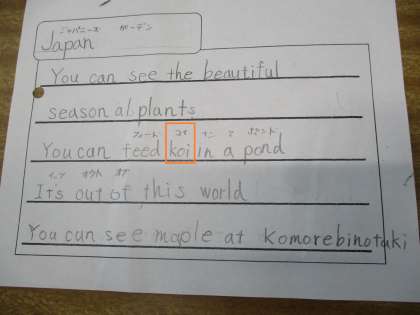 ジャパニーズ ガーデン
Japan
You can see the beautiful
seasonal plants
フィード コイ イン ア ポンド
You can feed koi in a pond
イッツ アウト オブ
It's out of this world
You can see maple at Komorebinotaki